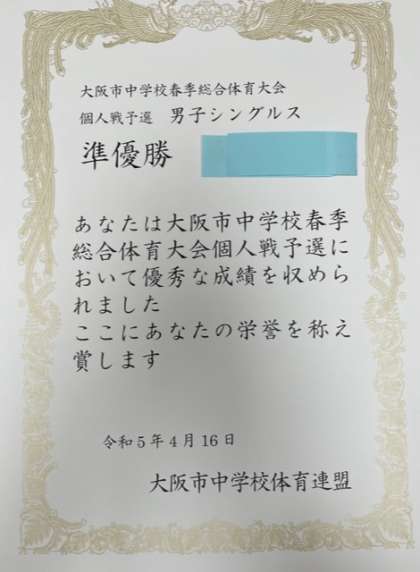 大阪市中学校春季総合体育大会
個人戦予選 男子シングルス
準優勝
あなたは大阪市中学校春季
総合体育大会個人戦予選に
おいて優秀な成績を収めら
れました
ここにあなたの栄誉を称え
賞します
令和5年4月16日
大阪市中学校体育連盟